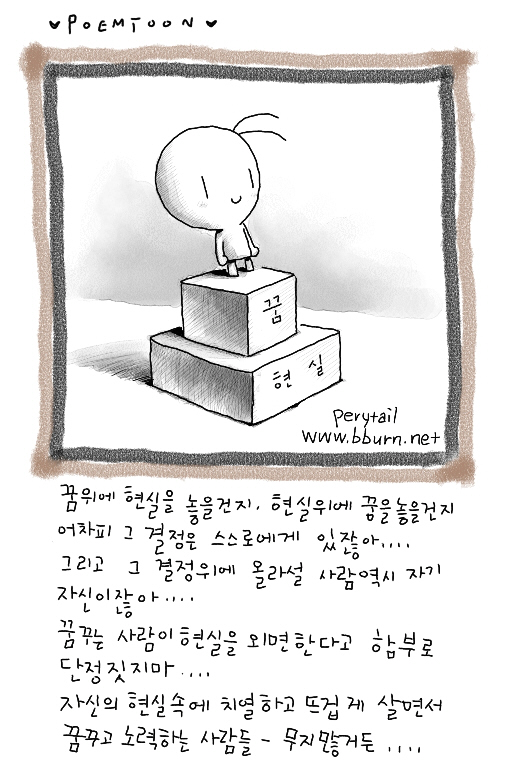 POEMTOON
꿈
현실
perytail
www.bburn.net
꿈위에 현실을 놓을건지, 현실위에 꿈을놓을건지
어차피 그 결정은 스스로에게 있잖아....
그리고 그 결정위에 올라설 사람역시 자기
자신이잖아....
꿈꾸는 사람이 현실을 외면한다고 함부로
단정짓지마....
자신의 현실속에 치열하고 뜨겁게 살면서
꿈꾸고 노력하는 사람들 - 무지많거든....